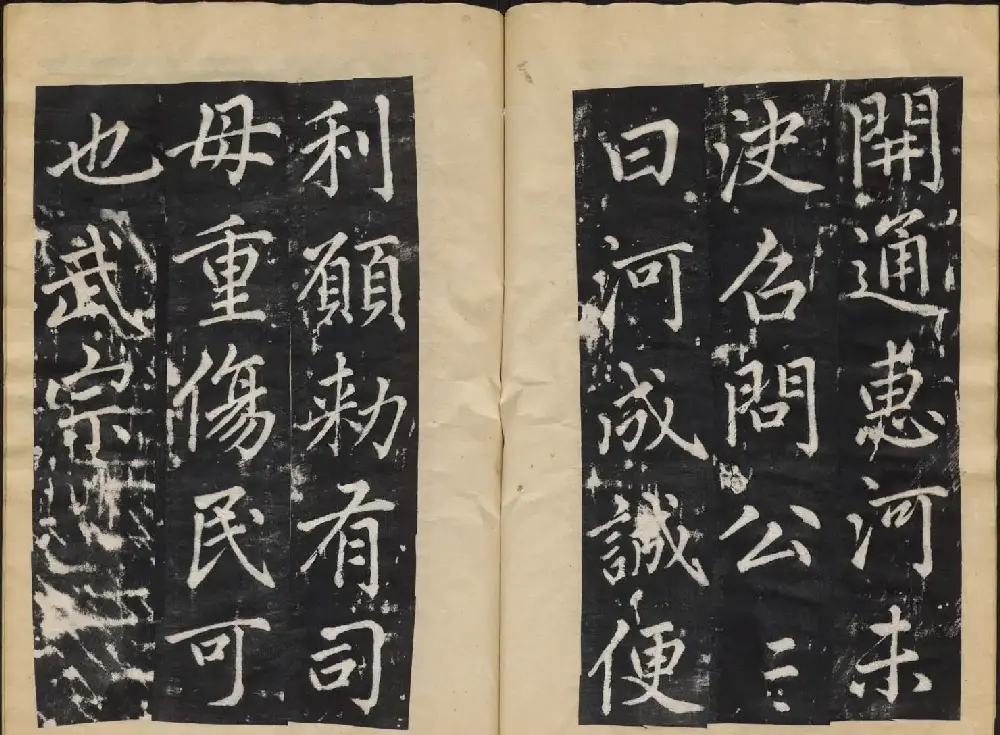 開通惠河未
決召問公〻
曰河成誠便
利願勑有司
毋重傷民可
也武宗